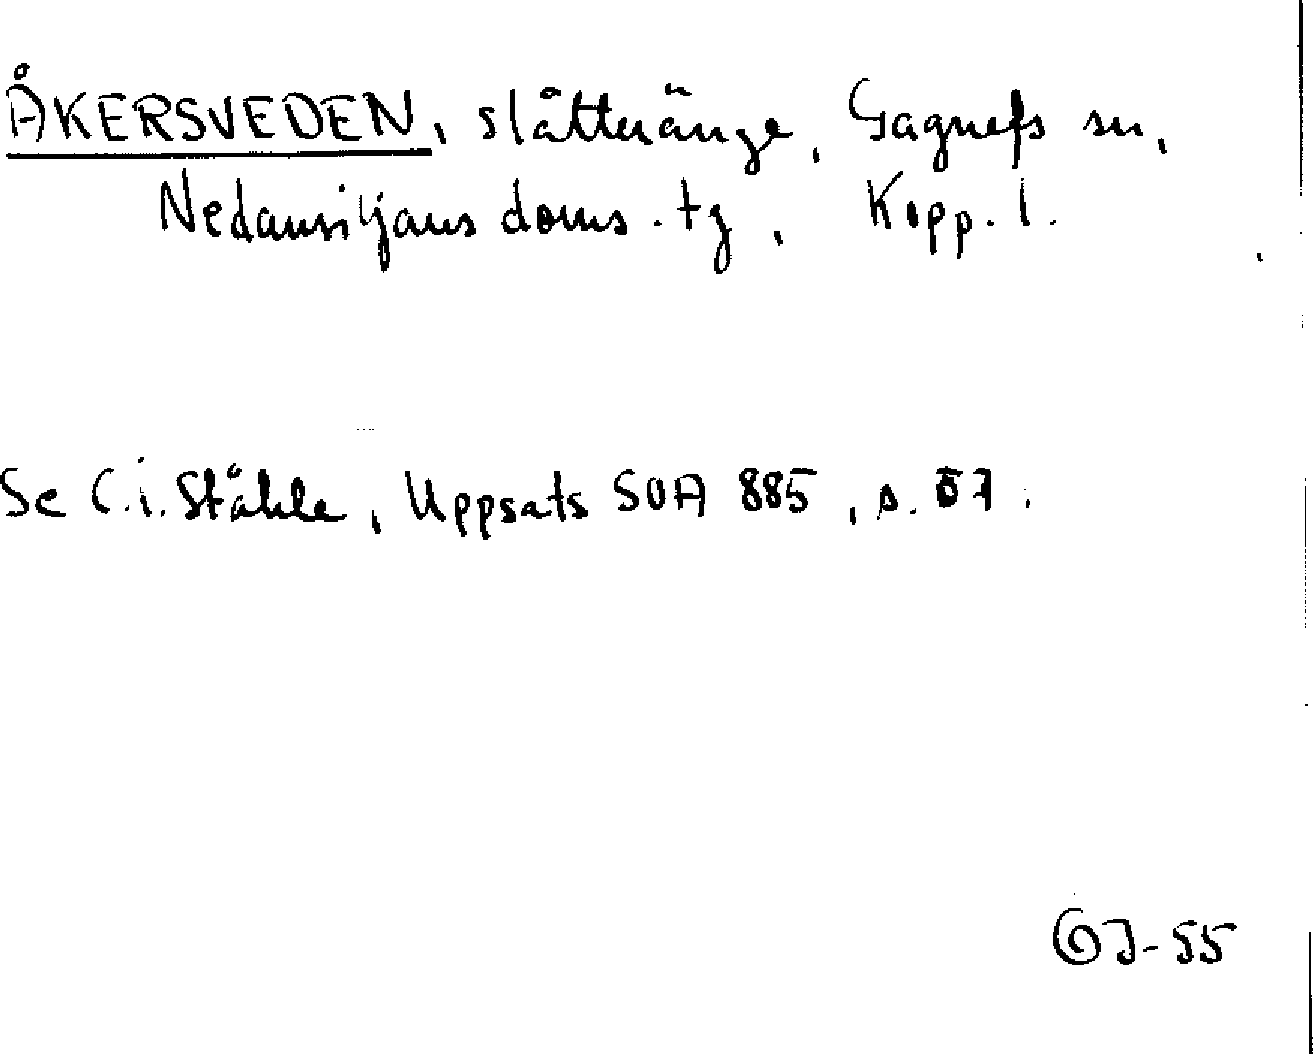 ÅKERSVEDEN, slåtteränge, Gagnefs sn,
Nedansiljans doms. tg, Kopp. l.
Se C.i. Ståhle, Uppsats SOA 885, s. 57.
GJ-55